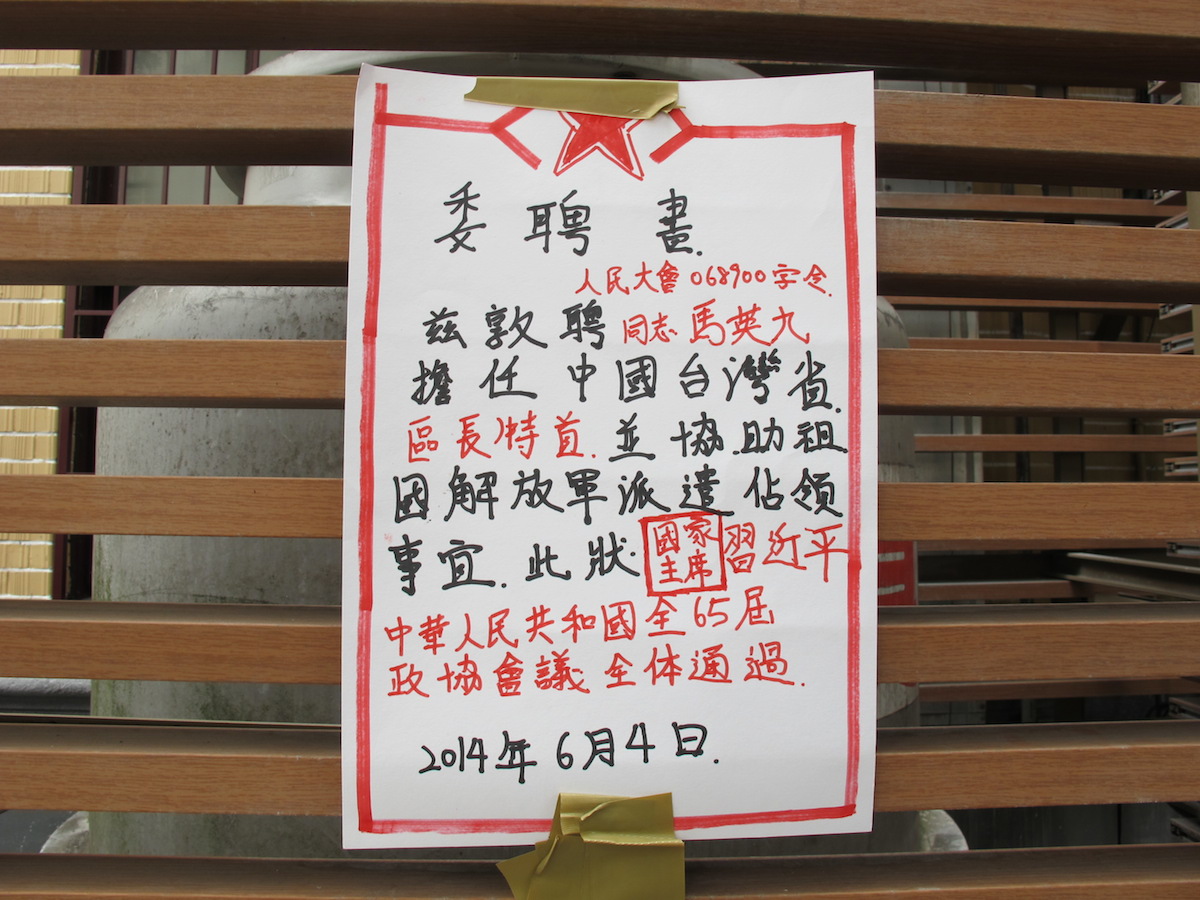 委聘書.
人民大會068900字令.
茲敦聘同志馬英九
擔任中國台灣省.
區長/特首.並協助祖
國解放軍派遣佔領
事宜.此狀 國家主席 習近平
中華人民共和國全65屆
政協會議全体通過.
2014年6月4日.